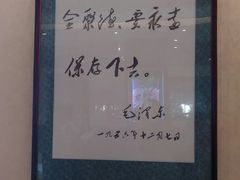 全聚德要永远
保存下去。
毛泽东
一九五六年十二月七日